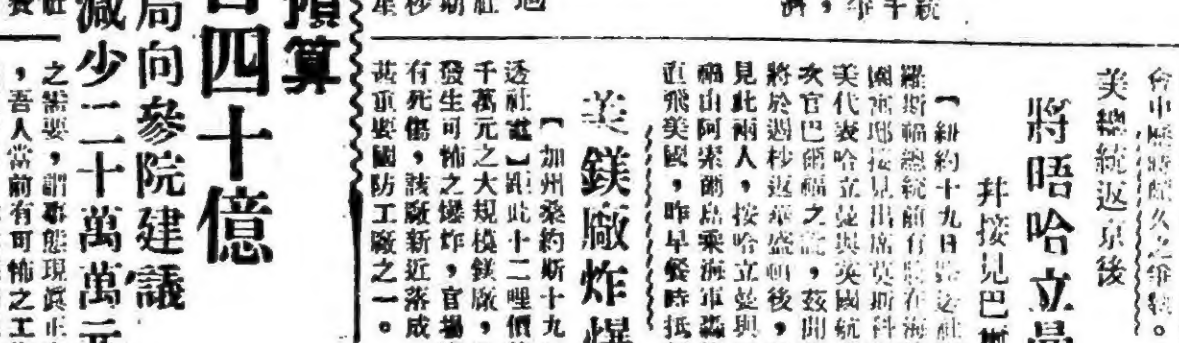 會中歷時頗久之維納。
美總統返京後
將晤哈立曼
并接見巴爾
【紐約十九日路透社
羅斯福總統前有在海
園寓邸接見出席莫斯科
美代表哈立曼與英國航
次官巴爾福之說，茲聞
將於週杪返華盛頓後，
見此兩人，按哈立曼與
福由阿索爾島乘海軍轟
直飛美國，昨早餐時抵
美鎂廠炸爆
【加州桑約斯十九
透社電】距此十二哩價
千萬元之大規模鎂廠，
發生可怖之爆炸，官場
有死傷，該廠新近落成
甚重要國防工廠之一。
預算
四十億
局向參院建議
減少二十萬萬元
之需要，謂事態現眞正
，吾人當前有可怖之工